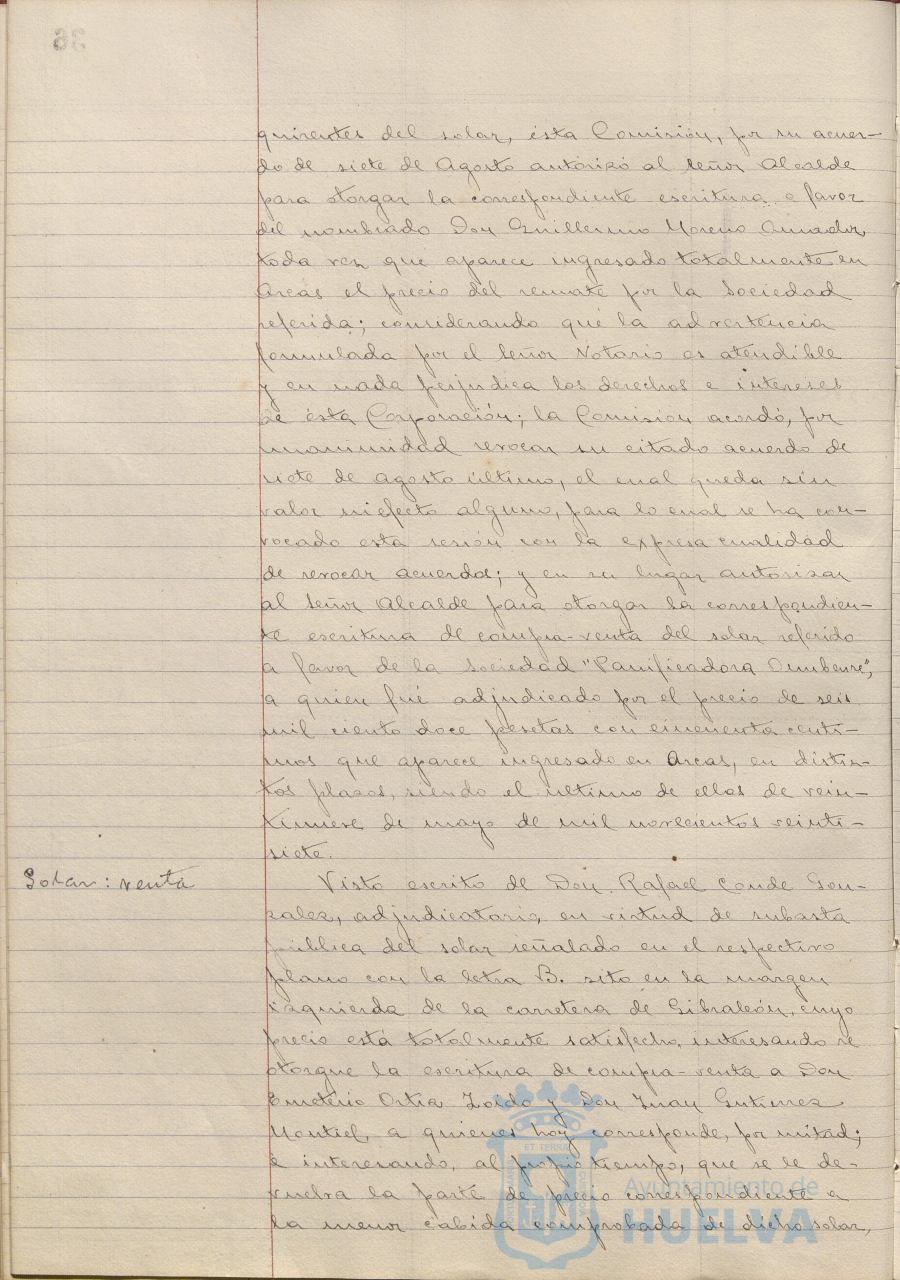 quirentes del solar, ésta Comisión, por su acuer-
do de siete de Agosto autorizó al señor Alcalde
para otorgar la correspondiente escritura a favor
del nombrado Don Guillermo Moreno Amador,
toda vez que aparece ingresado totalmente en
Arcas el precio del remate por la Sociedad
referida; considerando que la advertencia
formulada por el señor Notario es atendible
y en nada perjudica los derechos e intereses
de ésta Corporación; la Comisión acordó, por
unanimidad revocar su citado acuerdo de
siete de Agosto último, el cual queda sin
valor ni efecto alguno, para lo cual se ha con-
vocado esta sesión con la expresa cualidad
de revocar acuerdo; y en su lugar autorizar
al señor Alcalde para otorgar la correspondien-
te escritura de compra-venta del solar referido
a favor de la Sociedad "Panificadora Onubense",
a quien fué adjudicado por el precio de seis
mil ciento doce pesetas con cincuenta centi-
mos que aparece ingresado en Arcas, en distin-
tos plazos, siendo el ultimo de ellos de vein-
tinueve de mayo de mil novecientos veinti-
siete.
Solar: venta
Visto escrito de Don Rafael Conde Gon-
zalez, adjudicatario, en virtud de subasta
pública del solar señalado en el respectivo
plano con la letra B. sito en la margen
izquierda de la carretera de Gibraleón, cuyo
precio está totalmente satisfecho, interesando se
otorgue la escritura de compra-venta a Don
Emeterio Ortia Zoido y Don Juan Gutierrez
Montiel, a quienes hoy corresponde, por mitad;
é interesando, al propio tiempo, que se le de-
vuelva la parte de precio correspondiente a
la menor cabida comprobada de dicho solar,
Ayuntamiento de
HUELVA